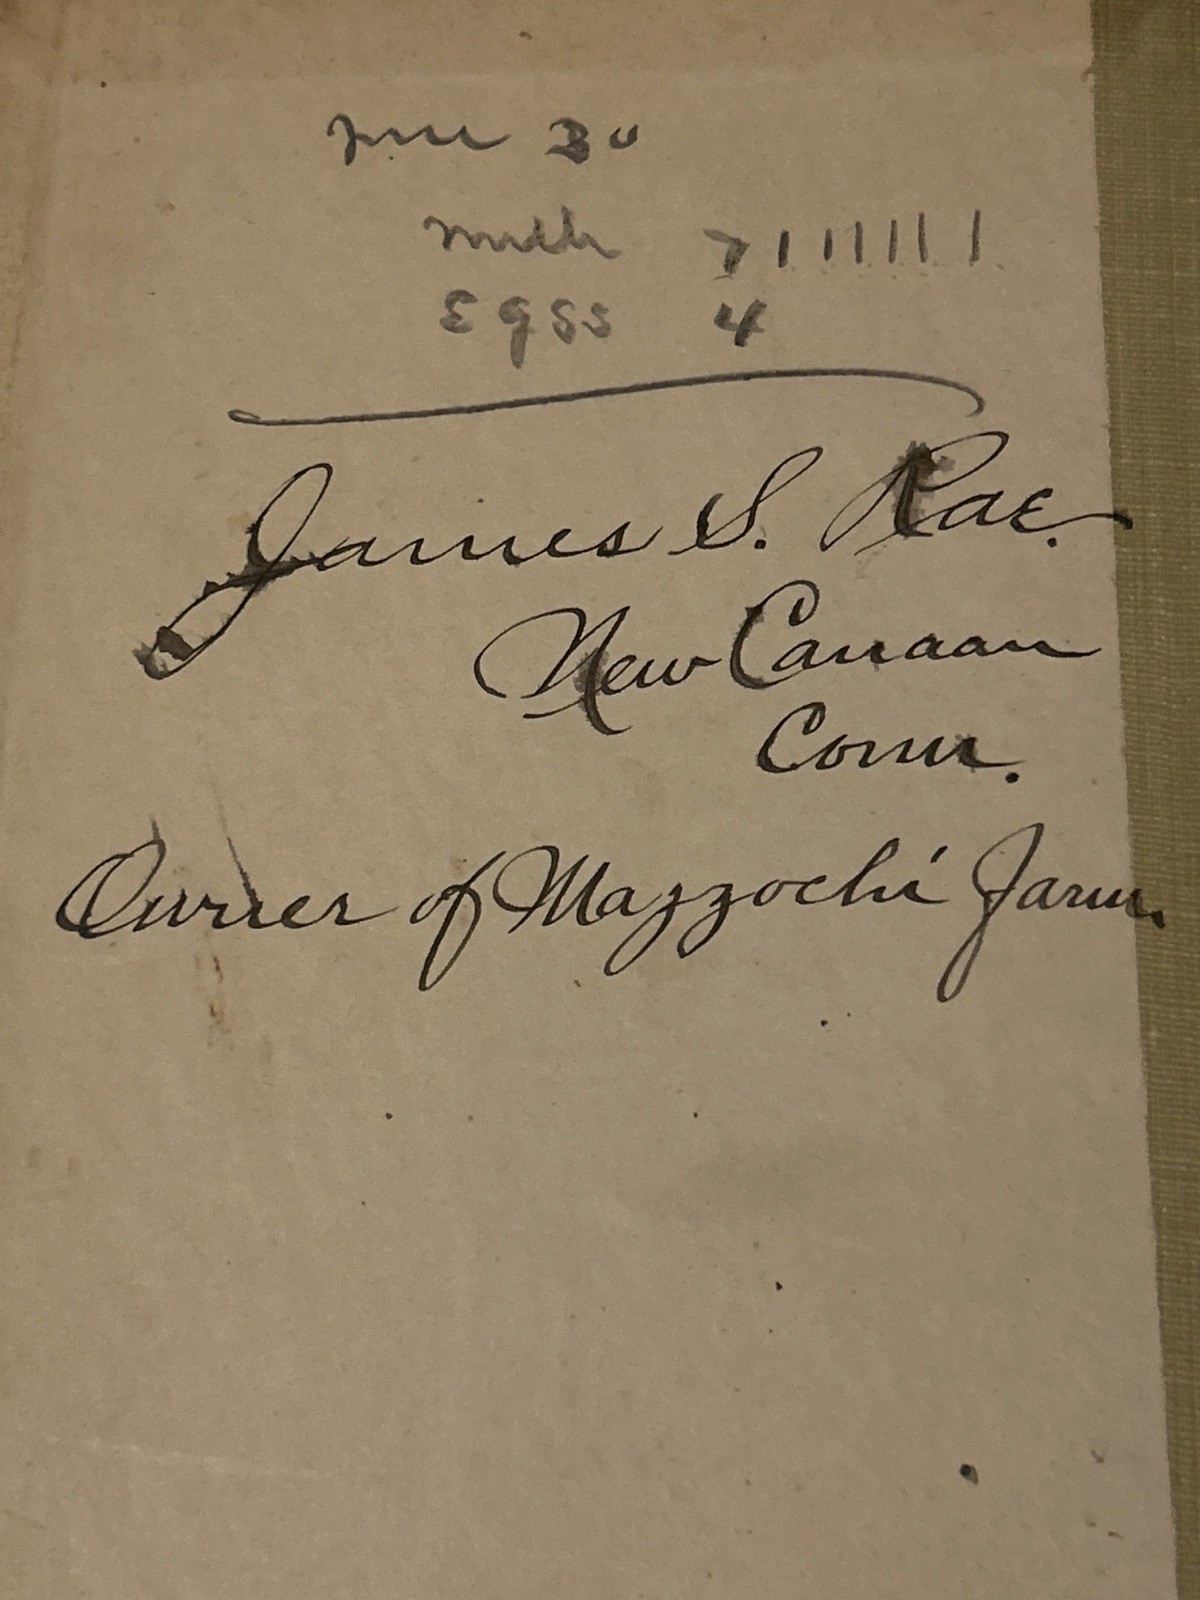 June 30
Milk 7 1 1 1 1 1 1 1
Eggs 4
James S. Rae.
New Canaan
Conn.
Owner of Mazzochi Farm.